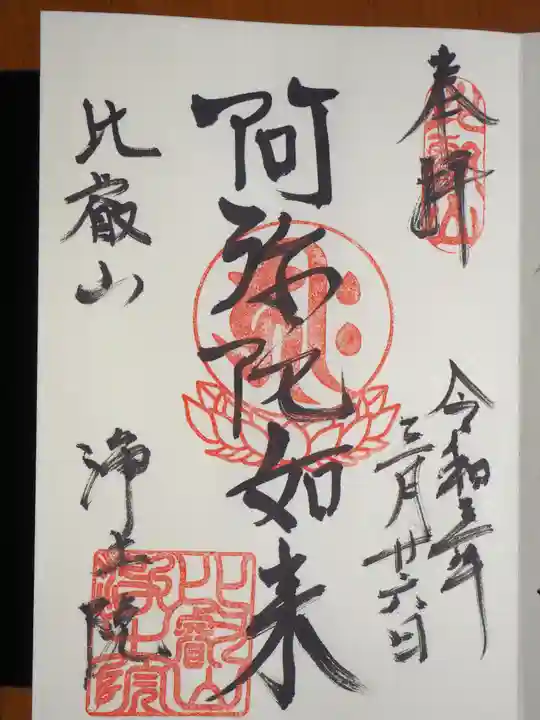 奉拝
令和三年
三月廿六日
阿弥陀如来
比叡山
浄土院
比叡山
比叡山
浄土院